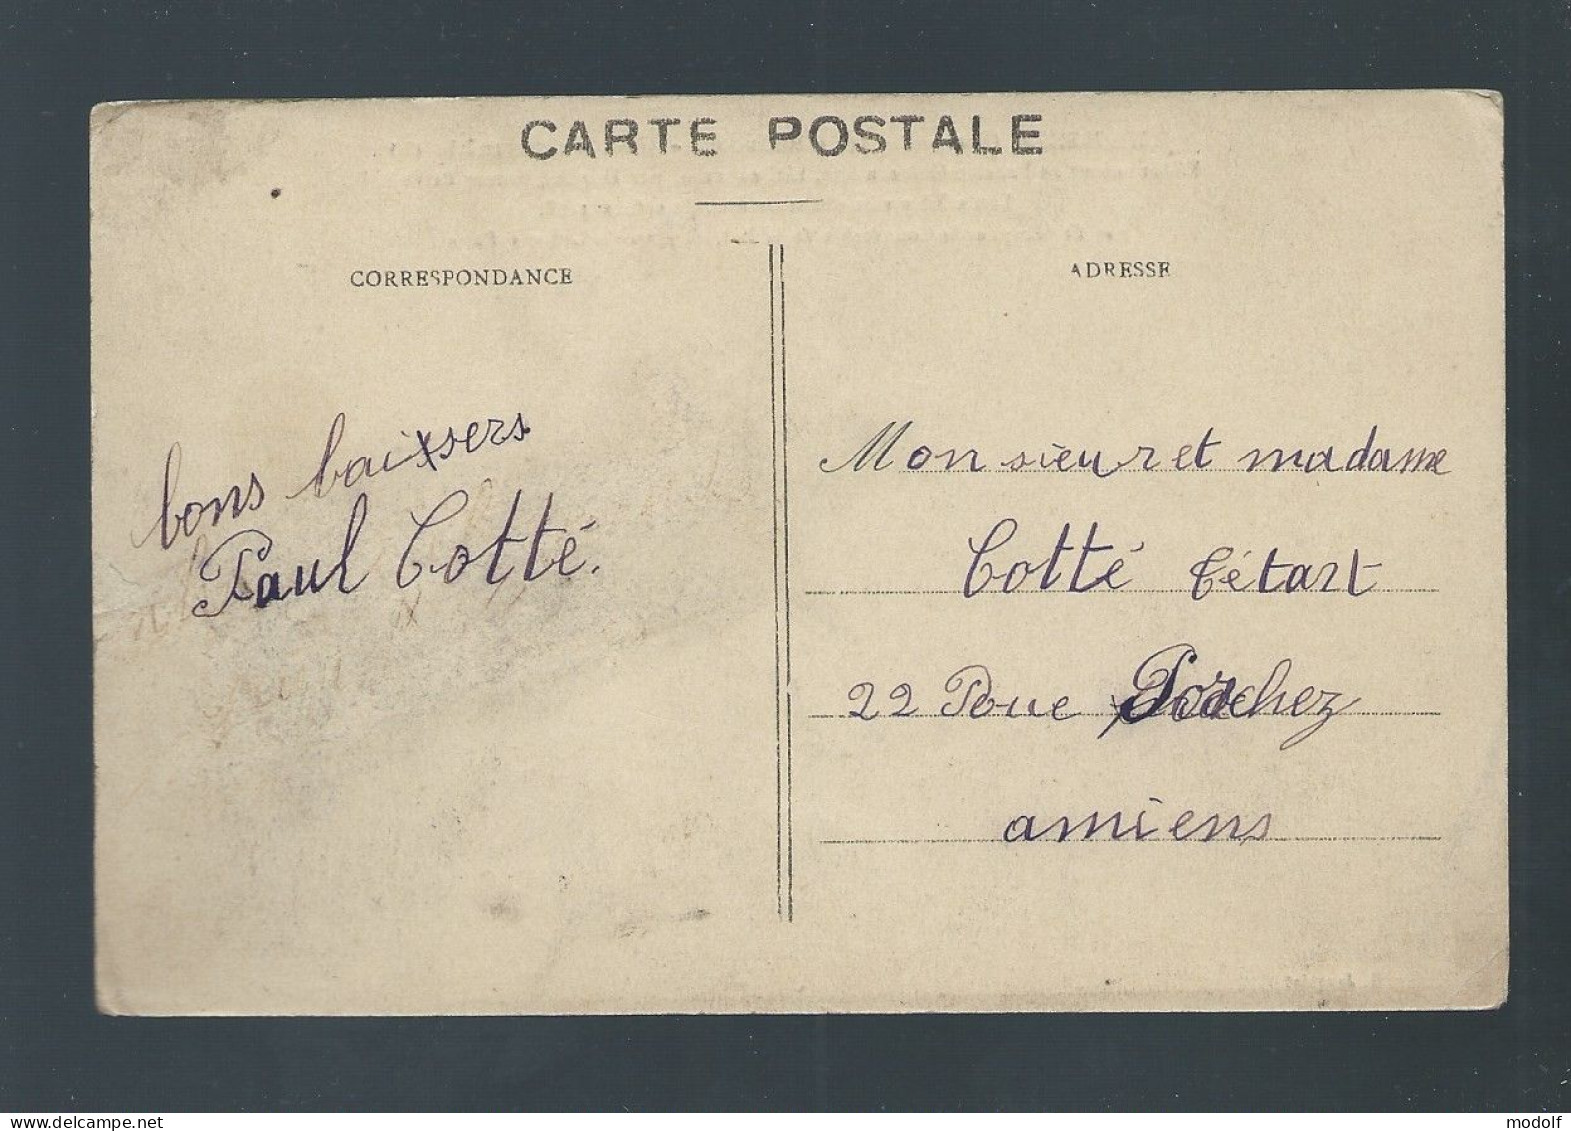 CARTE POSTALE
CORRESPONDANCE
bons baixsers
Paul Cotté.
ADRESSE
Monsieur et madame
Cotté Tétart
22 Roue Porchez
amiens
modolf